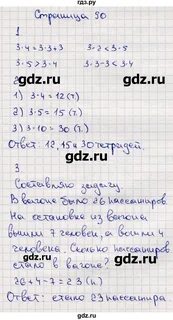 Страница 90
1
3·4=3·3+3 3·2<3·5
3·5>3·4 3·3-3<3·4
2
1) 3·4=12 (т.)
2) 3·5=15 (т.)
3) 3·10=30 (т.)
Ответ: 12, 15 и 30 тетрадей.
3
Составляю задачу.
В вагоне было 26 пассажиров.
На остановке из вагона
вышли 7 человек, а вошли 4
человека. Сколько пассажиров
стало в вагоне?
26+4-7=23 (п.)
Ответ: стало 23 пассажира.
gdz.ru
gdz.ru
gdz.ru
gdz.ru
gdz.ru
gdz.ru
gdz.ru
gdz.ru